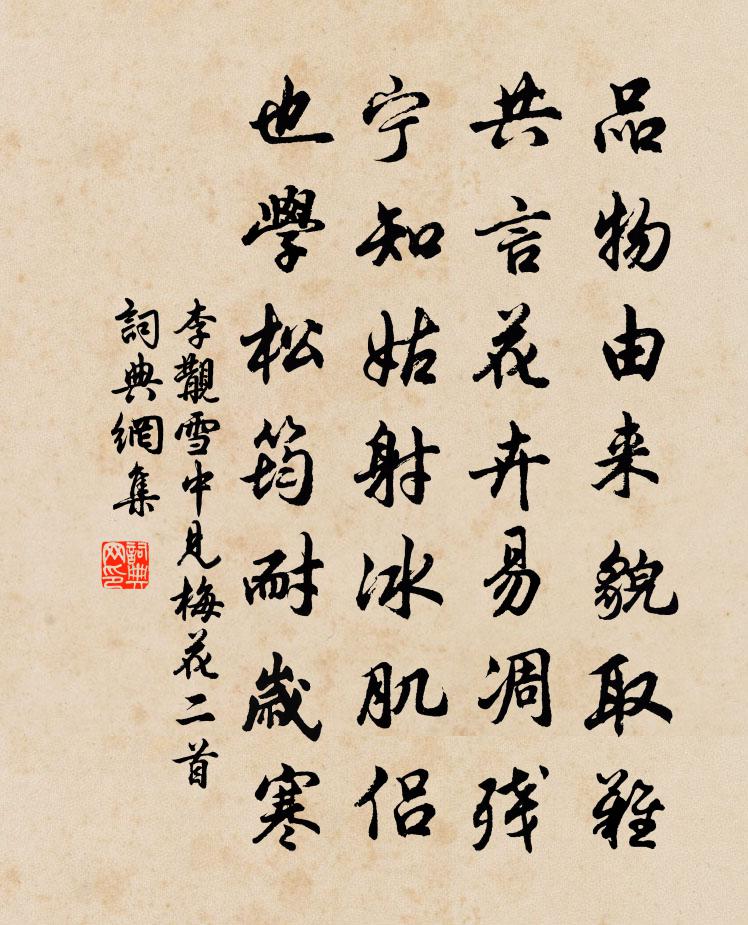 品物由来貌取難
共言花卉易凋残
宁知姑射冰肌侣
也學松筠耐歲寒
李覯雪中見梅花二首
詞典網集
詞典网印